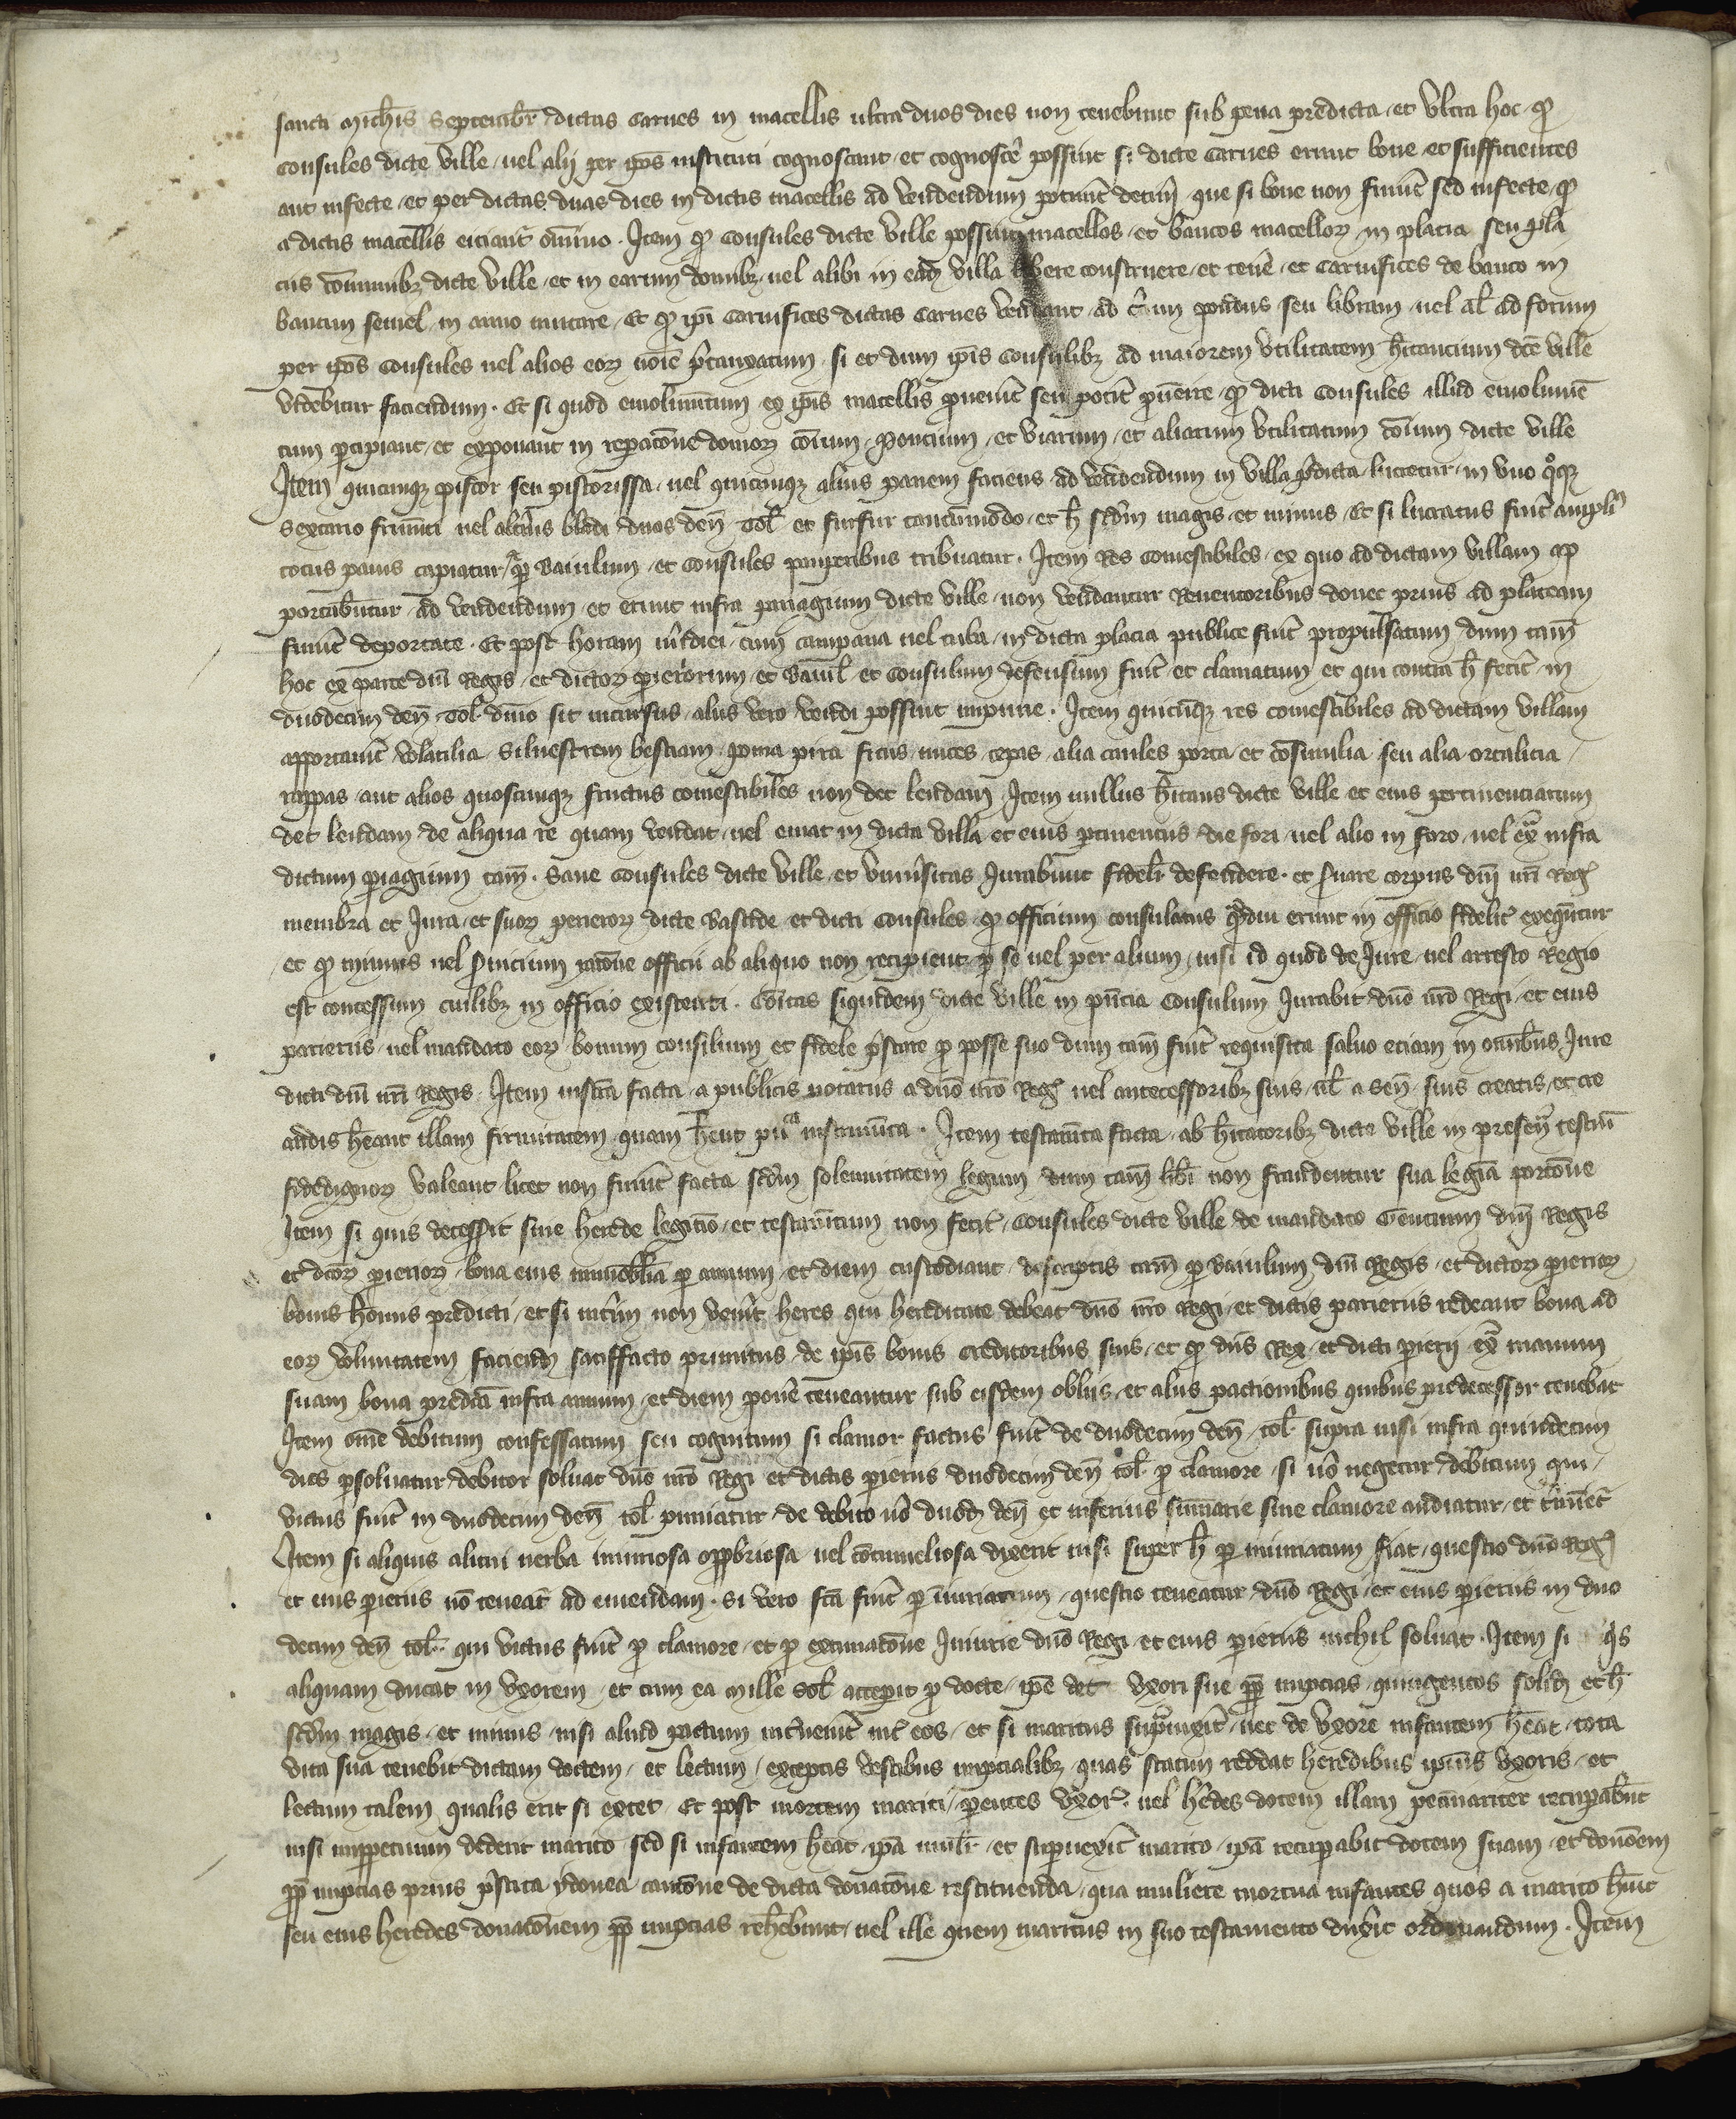 sancti Mich̄is Septembr̄ dictas carnes in macellis ultra duos dies non tenebunt sub pena predicta et ultra hoc qꝫ
consules dicte ville uel alij per ip̄os instituti cognoscant et cognosce᷑ possint si dicte carnes erunt bone et sufficientes
aut infecte et per dictas duas dies in dictis macellis ad vendendum poterūt detin̄i que si bone non fuerīt sed infecte qꝫ
a dictis macellis eiciant᷑ om̄ino . Item qꝫ consules dicte ville possint macellos et bancos macelloꝝ in placia seu pla
ciis cōmunibꝫ dicte ville et in earum domibꝫ uel alibi in eadꝫ villa libere construere et tene᷑ et carnifices de banco in
bancum semel in anno mutare Et qꝫ ip̄i carnifices dictas carnes vendant ad c̄tum pondus seu libram uel al̄ ad forum
per ip̄os consules uel alios eoꝝ noīe p̄taxatum si et dum ip̄is consulibꝫ ad maiorem utilitatem h̄itancium dc̄e ville
videbitur faciendum . Et si quod emolumētum ex ip̄is macellis ꝓuenīt seu pot̄it ꝓuen̄ire qꝫ dicti consules illud emolumē
tum ꝑcipiant et exponant in rep̄acōne domoꝝ cōium poncium et viarum et aliarum utilitatum cōium dicte ville
Item quicunqꝫ pistor seu pistorissa uel quicunqꝫ alius panem faciens ad vendendum in villa p̄dicta lucretur in uno qᵒqꝫ
sextario frumēti uel alt̄ius bladi duos den̄ tol̄ et furfur tantūmodo et h̄ scd̄m magis et minus Et si lucratus fuīt ampli᷑
totus panis capiatur ꝑ baiulum et consules pauperibus tribuatur . Item res comestibiles ex quo ad dictam villam ap
portabūtur ad vendendum et erunt infra pariagium dicte ville non vendantur reuentoribus donec prius ad plateam
fuerīt deportate . Et post horam m̄idiei cum campana uel tuba in dicta placia publice fuīt propulsatum dum tam̄
hoc ex parte dn̄i Regis et dictoꝝ parieriorum et baiul̄ et consulum defensum fuīt et clamatum et qui contra h̄ fecīt in
duodecim den̄ tol̄ dn̄o sit incursus aliis vero vendi possint impune . Item quicūqꝫ res comestibiles ad dictam villam
apportauīt volatilia siluestrem bestiam poma pira ficus nuces cepas alia caules porra et cōsimilia seu alia ortalicia
rappas aut alios quoscunqꝫ fructus comestibiles non det leudam Item nullus h̄itans dicte ville et eius pertinenciarum
det leudam de aliqua re quam vendat uel emat in dicta villa et eius ꝑtinentiis die fori uel alio in foro uel ex̄ infra
dictum ꝑiagium tam̄ . Sane consules dicte ville et uniu᷑sitas Jurabunt fidel᷑r defendere et s̄uare corpus dn̄i nr̄i Reg᷑
membra et Jura et suoꝝ parierioꝝ dicte bastide et dicti consules qꝫ officium consulatus qᵃmdiu erunt in officio fidelit᷑ exequētur
et qꝫ munus uel s̄uicium racōne officii ab aliquo non recipient ꝑ se uel per alium nisi id quod de Jure uel arresto Regio
est concessum cuilibꝫ in officio existenti . Cōitas siquidem dicte ville in pn̄cia consulum Jurabit dn̄o nr̄o Regi et eius
parieriis uel mandato eoꝝ bonum consilium et fidele p̄stare ꝓ posse suo dum tam̄ fuīt requisita saluo eciam in omībus Jure
dicti dn̄i nr̄i Regis . Item inst̄ra facta a publicis notariis a dn̄o nr̄o Reg᷑ uel antecessoribꝫ suis ul̄ a sen̄ suis creatis et cre
andis h̄eant illam firmitatem quam h̄ent puᶜᵃ instrumēta . Item testamēta facta ab h̄itatoribꝫ dicte ville in presen᷑ testiū
fidedignoꝝ valeant licet non fuerīt facta scd̄m solemnitatem legum dum tam̄ lib̄i non fraudentur sua legīa porcōne
Item si quis decesserit sine herede legitīo et testamētum non fecit᷑ consules dicte ville de mandato Gencium dn̄i Regis
et dc̄oꝝ parierioꝝ bona eius immobilia ꝑ annum et diem custodiant descriptis tam̄ ꝑ baiulum dn̄i Regis et dictoꝝ parierioꝝ
bonis hoīis predicti et si int̄im non ven̄it heres qui hereditate debeat dn̄o nr̄o Regi et dictis parieriis redeant bona ad
eoꝝ voluntatem faciend̄ satiffacto primitus de ip̄is bonis creditoribus suis et qꝫ dn̄s Rex et dicti parierij ex̄ manum
suam bona predc̄a infra annum et diem pone᷑ teneantur sub eisdem obliis et aliis pactionibus quibus predecessor tenebat᷑
Item om̄e debitum confessatum seu cognitum si clamor factus fuīt de duodecim den̄ tol̄ supra nisi infra quindecim
dies ꝑsoluatur debitor soluat dn̄o nr̄o Regi et dictis parieriis duodecim den̄ tol̄ ꝓ clamore si uᵒ negetur debitum qui
victus fuīt in duodecim den̄ tol̄ puniatur de debito uᵒ duodꝫ den̄ et inferius summarie sine clamore audiatur et t̄minet᷑
Item si aliquis alicui uerba iniuriosa opprobriosa uel cōtumeliosa dixerit nisi super h̄ ꝑ iniuriatum fiat questio dn̄o Reg᷑
et eius parieriis nō teneat᷑ ad emendam . Si vero fc̄a fuīt ꝑ iniuriatum questio teneatur dn̄o Regi et eius parieriis in duo
decim den̄ tol̄ qui victus fuīt ꝓ clamore et ꝓ extimacōne Iniurie dn̄o Regi et eius parieriis nichil soluat . Item si qis
aliquam ducat in uxorem et cum ea mille sol̄ acceperit ꝓ docte ip̄e det uxori sue ꝓpt̄ nupcias quingentos solid̄ et h̄
scd̄m magis et minus nisi aliud pactum int̄uenīt int᷑ eos et si maritus suꝑuixīt nec de uxore infantem h̄eat tota
vita sua tenebit dictam doctem et lectum exceptis vestibus nupcialibꝫ quas statim reddat heredibus ipsius uxoris et
lectum talem qualis erit si extet Et post mortem mariti parentes uxor᷑ uel h̄edes dotem illam pecūiariter recuꝑabūt
nisi imperpetuum dederit marito sed si infantem h̄eat ip̄a mulier et suꝑuixīt marito ip̄a recuꝑabit dotem suam et donōem
ꝓpt̄ nupcias prius p̄stita ydonea caucōne de dicta donacōne restituenda qua muliere mortua infantes quos a marito h̄uīt
seu eius heredes donacōnem ꝓpt̄ nupcias reh̄ebunt uel ille quem maritus in suo testamento dux̄it ordinandum . Item